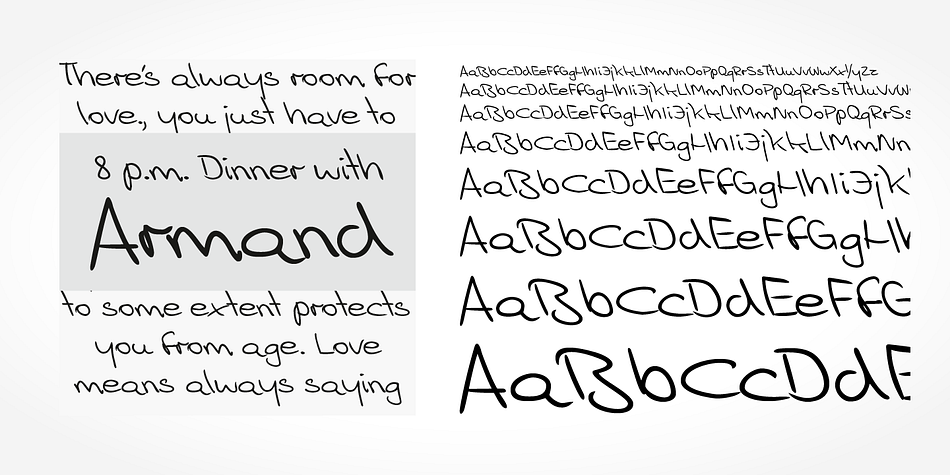 There's always room for
love., you just have to
8 p.m. Dinner with
Armand
to some extent protects
you from age. Love
means always saying
AaBbCcDdEeFfGgHhIiJjKkLlMmNnOoPpQqRrSsTtUuVvWwXxYyZz
AaBbCcDdEeFfGgHhIiJjKkLlMmNnOoPpQqRrSsTtUuVvW
AaBbCcDdEeFfGgHhIiJjKkLlMmNnOoPpQqRrSs
AaBbCcDdEeFfGgHhIiJjKkLlMmNn
AaBbCcDdEeFfGgHhIiJjk
AaBbCcDdEeFfGgH
AaBbCcDdEeFfG
AaBbCcDdE